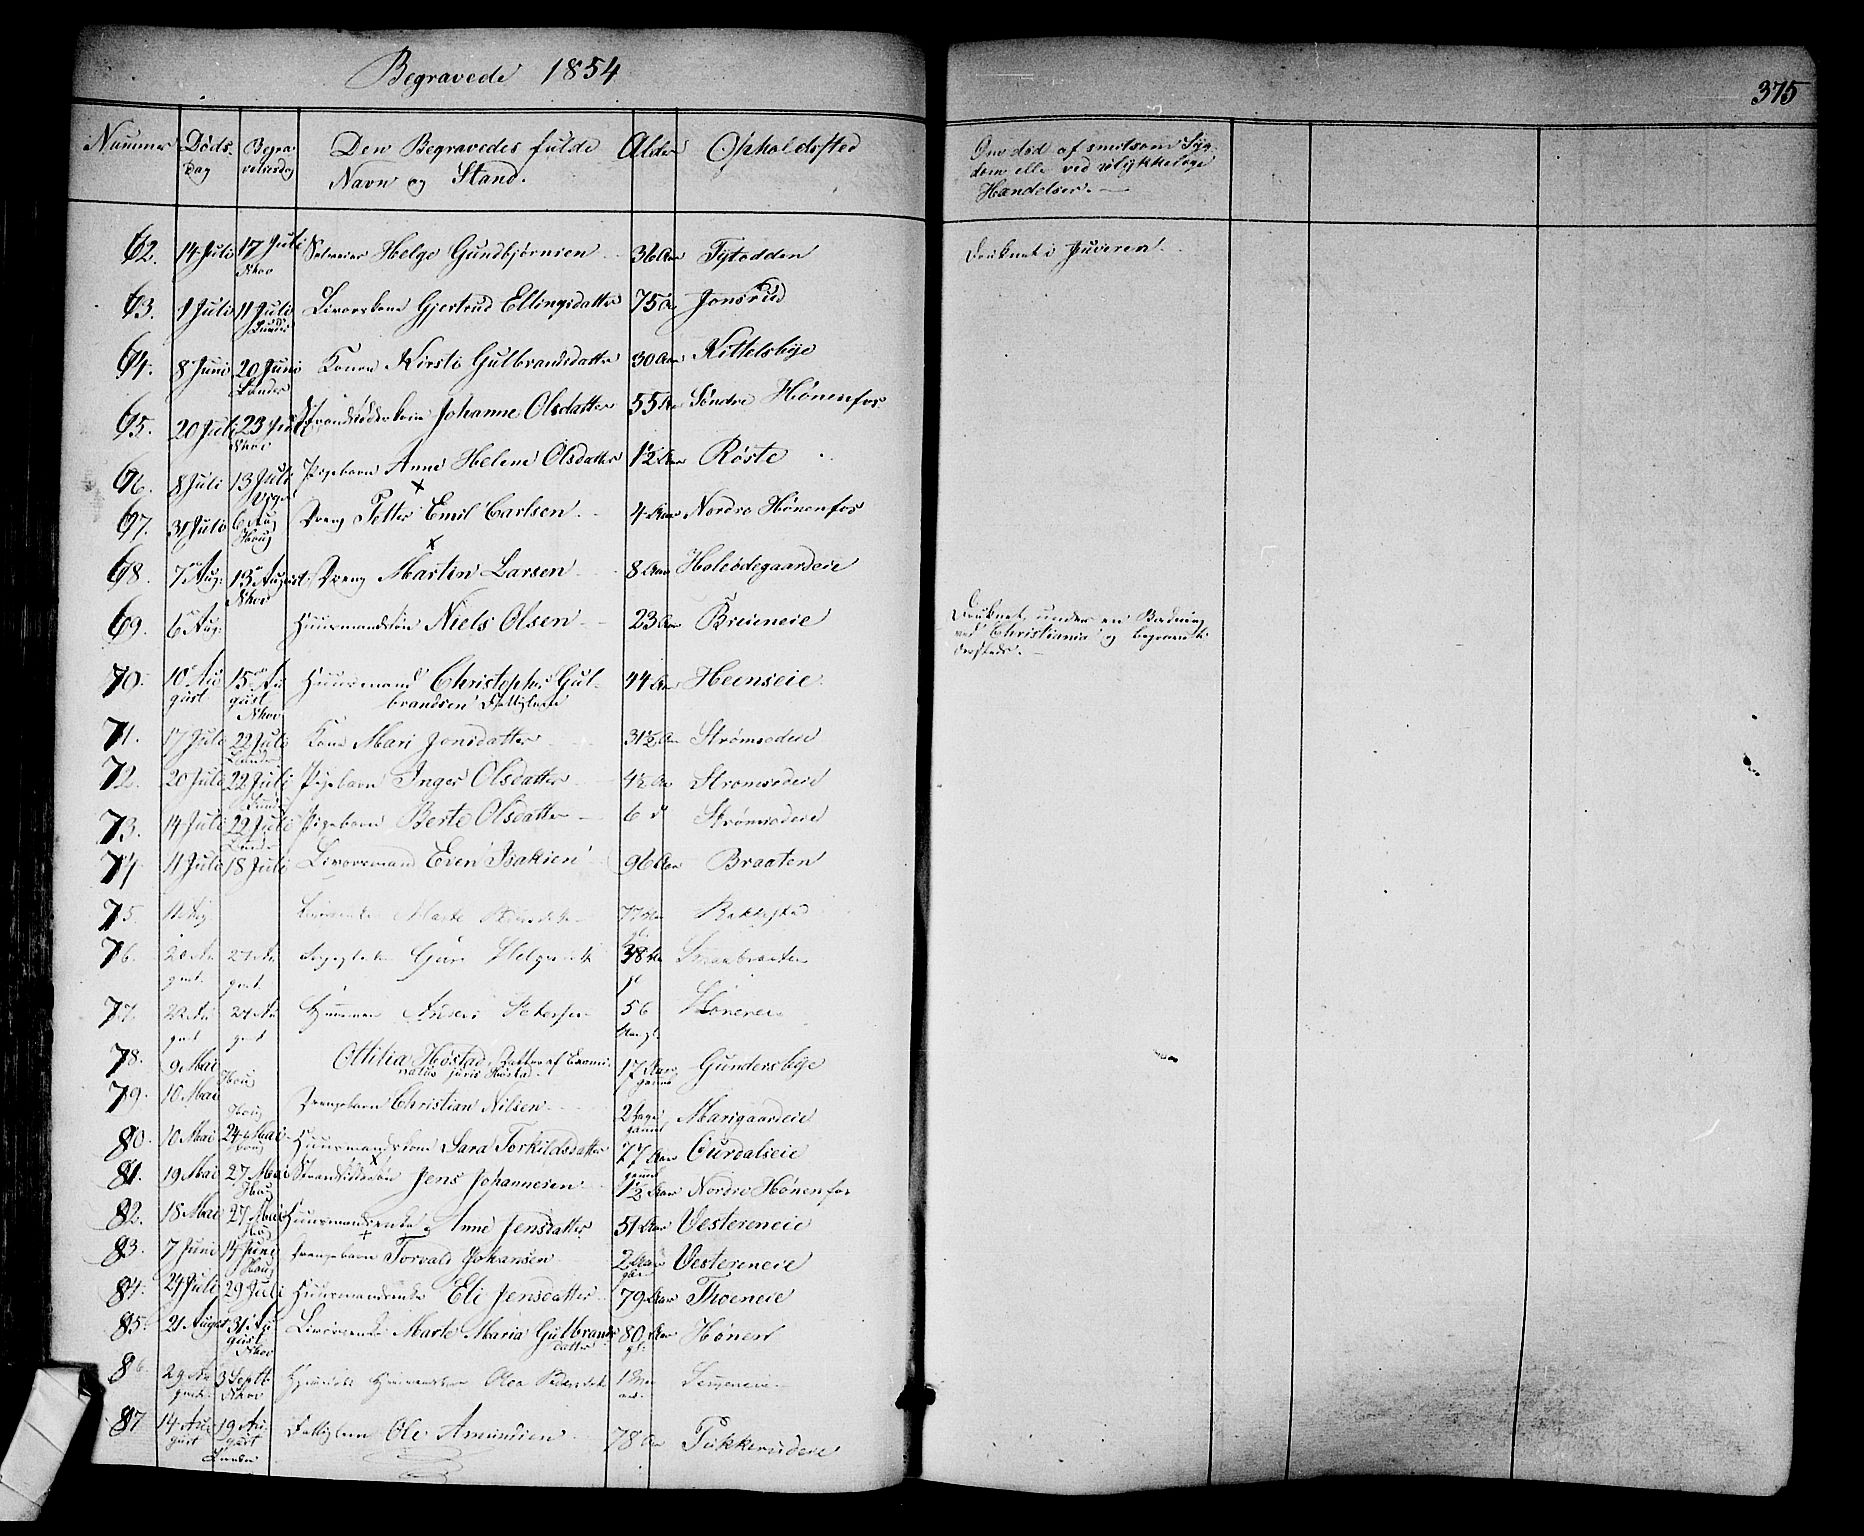 Begravede 1854
375
Nummer Døds- Dag Begravelsesdag Den Begravedes fulde Navn og Stand. Alder Opholdssted
Om død af smitsom Syg-
dom elle ved ulykkelige
Hændelser.
62. 14 Juli 17 Juli Nhov Selveier Helge Gundbjørnsen 36 Aar Tystedden Druknet i Juveren.
63. 1 Juli 11 Juli Lunder Livørskone Gjertrud Ellingsdatter 75 Jonsrud
64. 8 Juni 20 Juni Lunder Konen Kirsti Gulbrandsdatter 30 Aar Kittelsbye
65. 20 Juli 23 Juli Nhov Johanne Olsdatter 55 Søndre Hønenfos
66. 8 Juli 13 Juli Viger Pigebarn Anne Helene Olsdatter 1½ Aar Røste
67. 31 Juli 6 Aug Houg Dreng Petter Emil Carlsen 4 Aar Nordre Hønenfos
68. 7 Aug: 13 August Nhov Dreng Martin Larsen 8 Aar Holeødegaardeie
69. 6 Aug: Huusmandssøn Niels Olsen 23 Aar Breieneie
Druknet under en Badning
ved Christiania og begravet
dersteds.
70. 10 Au
gust 15 Au
gust Nhov Huusmand Christopher Gul-
brandsen Fattiglem 44 Aar Heenseie
71. 17 Juli 22 Juli Lunder Kone Mari Jonsdatter 31½ Aar Strømsodeie
72. 20 Juli 22 Juli Lunder Pigebarn Inger Olsdatter 4½ Aar Strømsodeie
73. 14 Juli 22 Juli Lunder Pigebarn Berte Olsdatter 6 d Strømsodeie
74. 11 Juli 18 Juli Livøremand Even Isaksen 96 Aar Braaten
75. 11 Aug Marte 77 Aar Bakkestad
76. 20 Au
gust 27 Au
gust Guri 38 Aar Smaabraaten
77. 22 Au
gust 27 Au
gust Huusman Anders Pedersen 56 Aar gl. Høneneie
78. 9 Mai Houg Ottilia Høstad, Datter af Exami-
natus juris Høstad 17 Aar gammel Gundersbye
79. 10 Mai Houg Drengebarn Christian Nilsen 2 Dage gammel Marigaardeie
80. 10 Mai 24 Mai Houg Huusmandskone Sara Torkildsdatter 77 Aar gammel Oürdalseie
81. 19 Mai 27 Mai Houg Strandsidderssøn Jens Johannesen 1½ Aar Nordre Hønenfos
82. 18 Mai 27 Mai Houg Huusmandsenke Anne Jensdatter 51 Aar Vestereneie
83. 7 Juni 14 Juni Houg Drengebarn Torvald Johansen 2 Aar Vestereneie
84. 24 Juli 29 Juli Huusmandsenke Eli Jensdatter 79 Aar Thoeneie
85. 21 August 31 Au
gust Nhov Livørsenke Marte Maria Gulbrands-
datter 80 Aar gl. Hønen
86. 29 Au
gust 3 Septb. Nhov Olea Pedersdatter
87. 14 Au
gust 19 Au-
gust Lunder Fattiglem Ole Amundsen 78 Aar Tukkerudeie